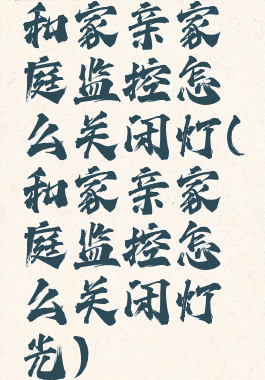 和家亲家
庭监控怎
么关闭灯(
和家亲家
庭监控怎
么关闭灯
光)